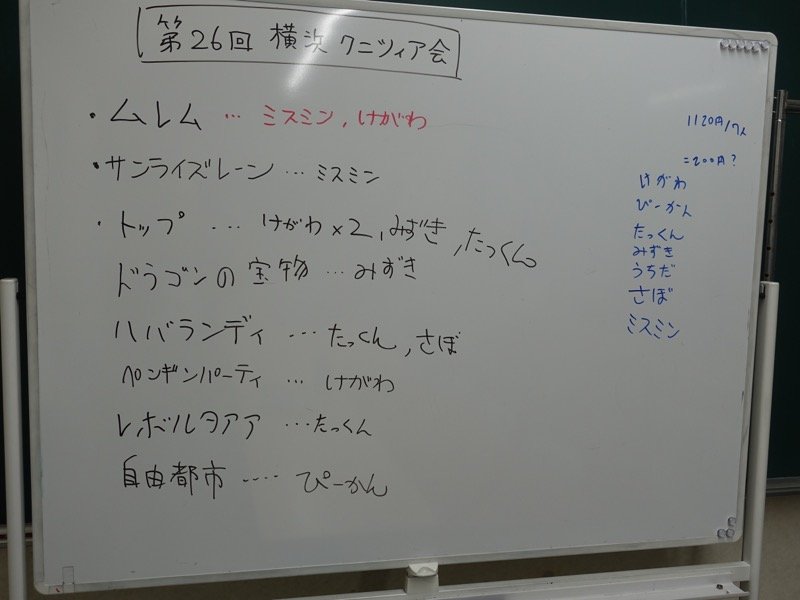 第26回 横浜 クニツィア会
・ムレム … ミスミン, けがわ
・サンライズレーン … ミスミン
・トップ … けがわ×2, みずき, たっくん
ドラゴンの宝物 … みずき
ハバランディ … たっくん, さぼ
ペンギンパーティ … けがわ
レボルヲアア … たっくん
自由都市 …. ぴーかん
1120円/7人
=200円?
けがわ
ぴーかん
たっくん
みずき
うちだ
さぼ
ミスミン